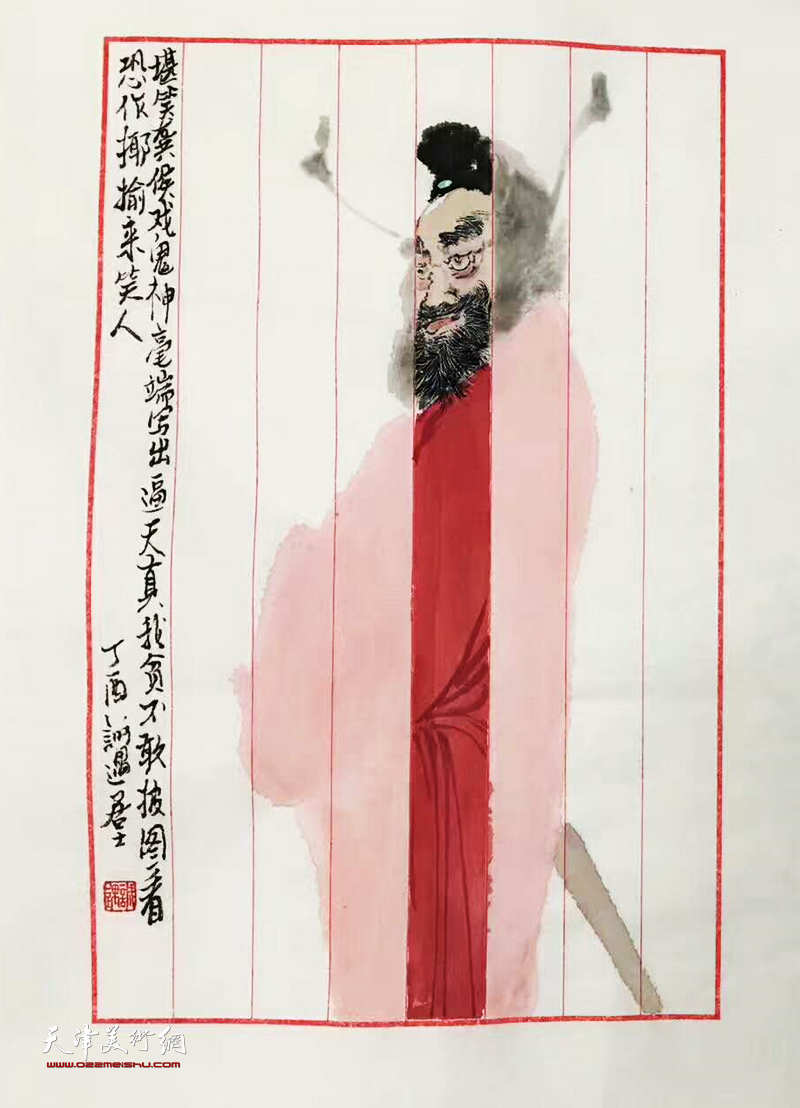 堪笑龚侯戏鬼神毫端写出逼天真我贫不敢披图看
恐作揶揄来笑人
丁酉 居士
天津美術網
www.022meishu.com